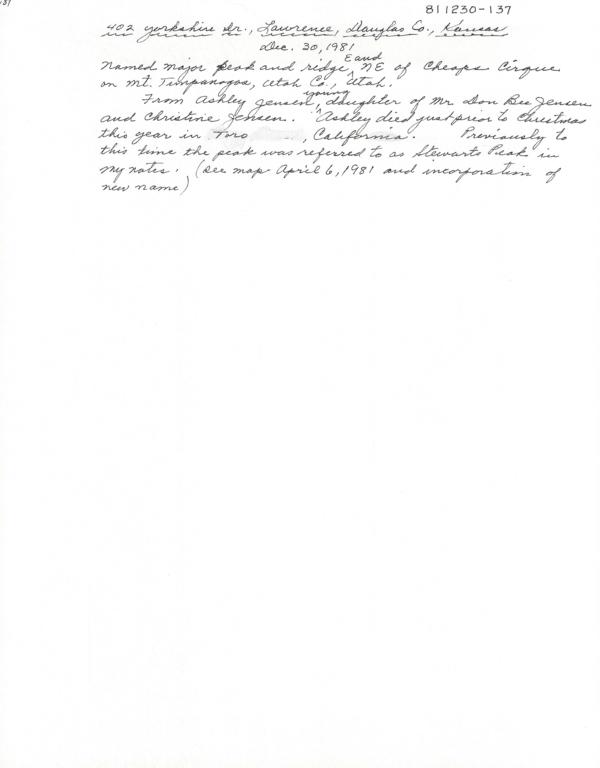 137
811230-137
402 Yorkshire Dr., Lawrence, Douglas Co., Kansas
Dec. 30, 1981
E and
Named major peak and ridge ^ NE of Cheops Cirque
on Mt. Timpanogos, Utah Co., Utah.
young
From Ashley Jensen, ^ daughter of Mr Don Bee Jensen
and Christine Jensen. Ashley died just prior to Christmas
this year in Toro , California. Previously to
this time the peak was referred to as Stewarts Peak in
my notes. (see map April 6, 1981 and incorporation of
new name)